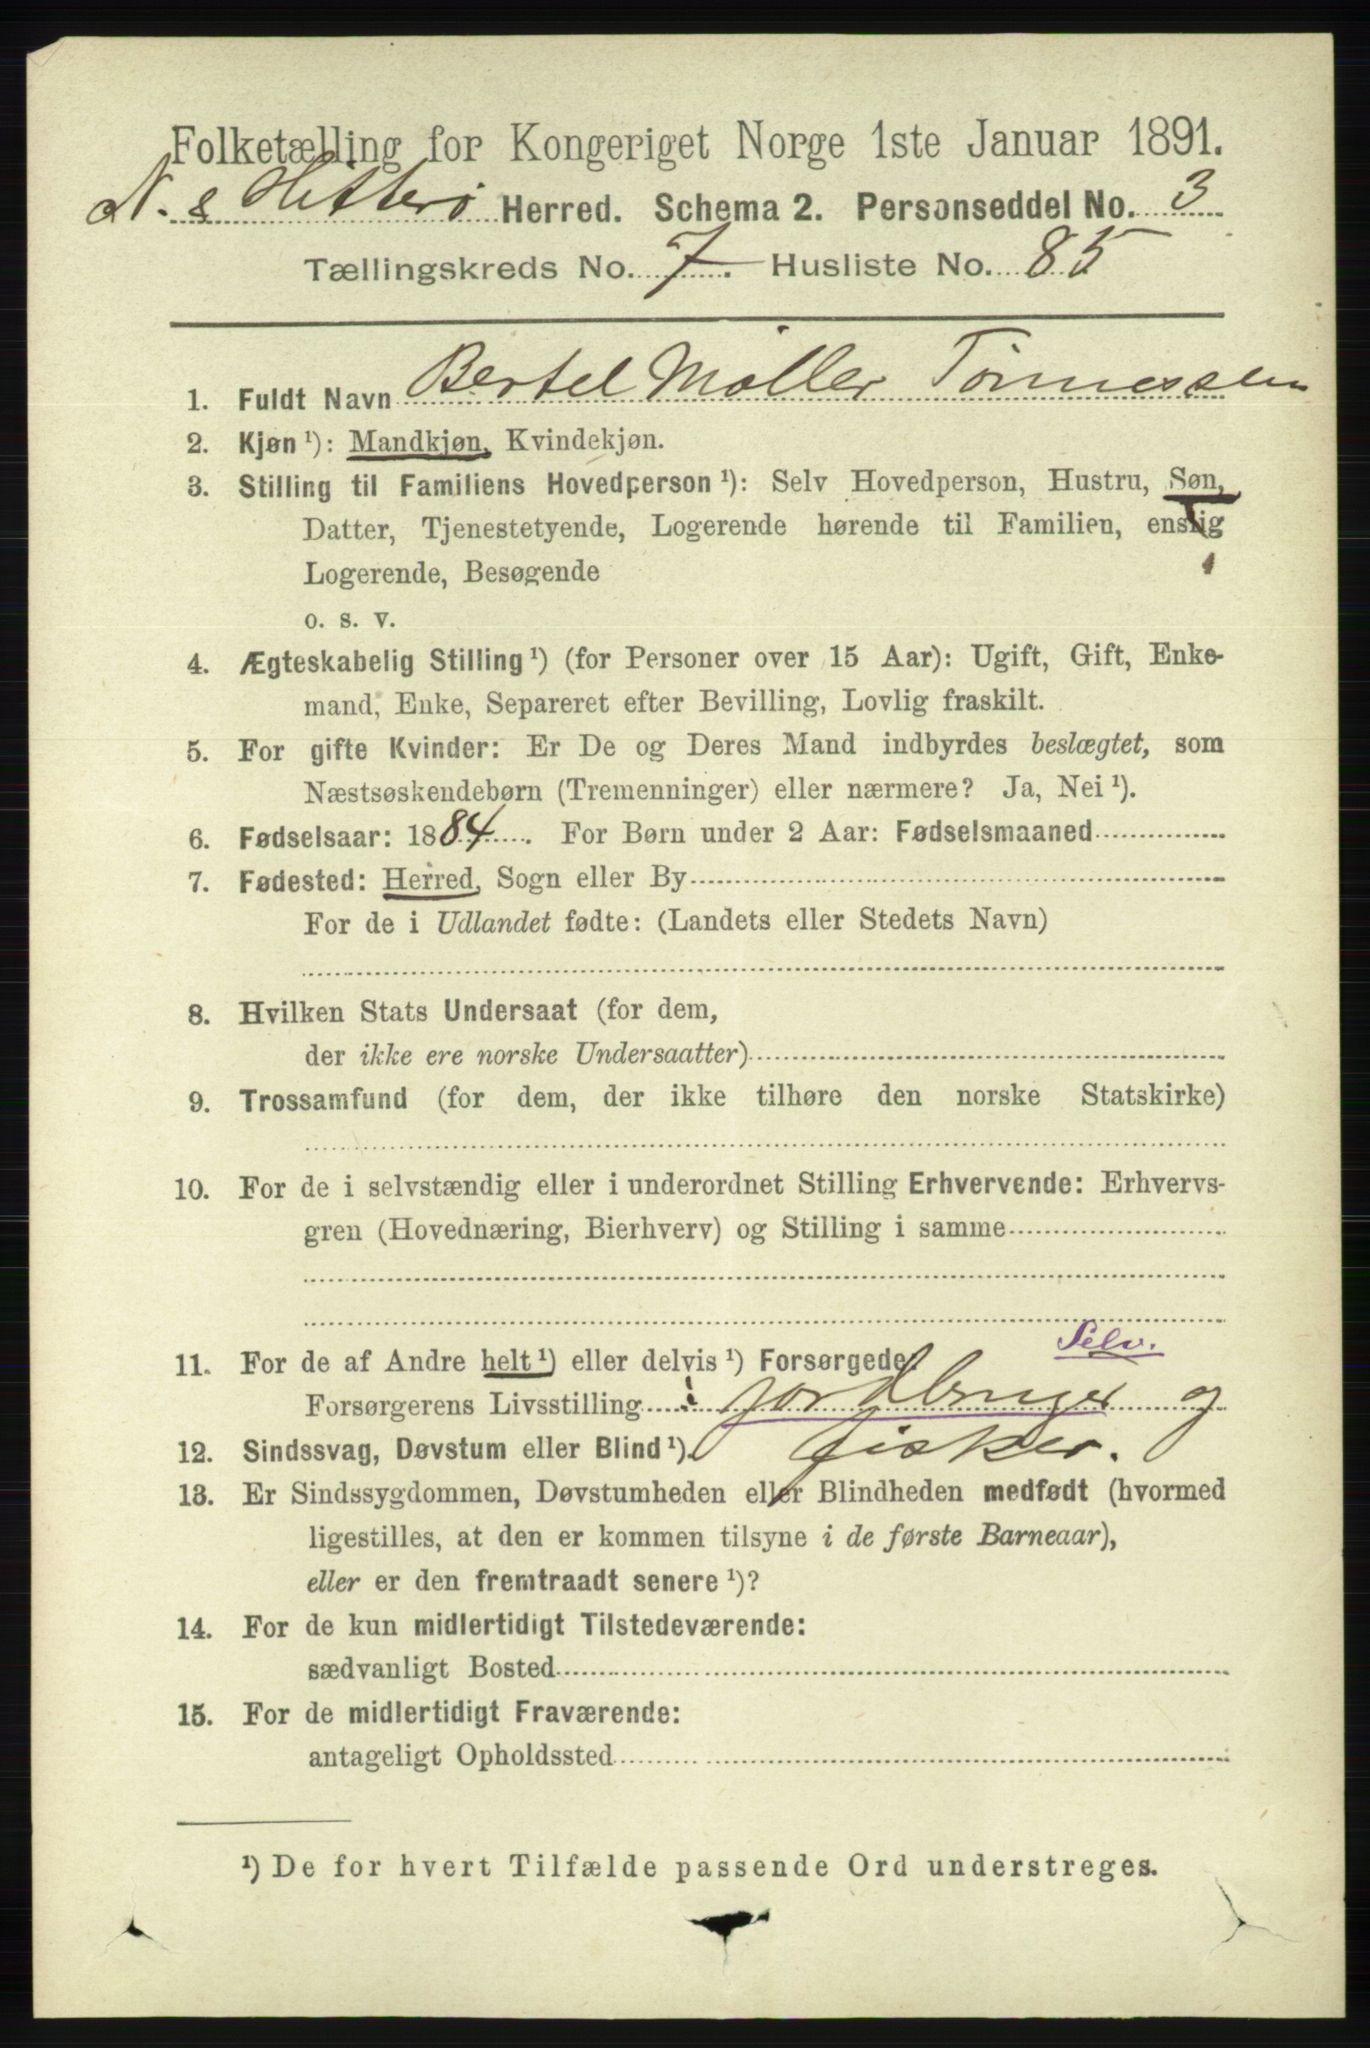 Folketælling for Kongeriget Norge 1ste Januar 1891.
N. & Hitterø Herred. Schema 2. Personseddel No. 3
Tællingskreds No. 7. Husliste No. 85
1. Fuldt Navn Bertel Møller Tønnessen
2. Kjøn ¹): Mandkjøn, Kvindekjøn.
3. Stilling til Familiens Hovedperson ¹): Selv Hovedperson, Hustru, Søn,
Datter, Tjenestetyende, Logerende hørende til Familien, enslig
Logerende, Besøgende
o. s. v.
4. Ægteskabelig Stilling ¹) (for Personer over 15 Aar): Ugift, Gift, Enke-
mand, Enke, Separeret efter Bevilling, Lovlig fraskilt.
5. For gifte Kvinder: Er De og Deres Mand indbyrdes beslægtet, som
Næstsøskendebørn (Tremenninger) eller nærmere? Ja, Nei ¹).
6. Fødselsaar: 1884. For Børn under 2 Aar: Fødselsmaaned
7. Fødested: Herred, Sogn eller By
For de i Udlandet fødte: (Landets eller Stedets Navn)
8. Hvilken Stats Undersaat (for dem,
der ikke ere norske Undersaatter)
9. Trossamfund (for dem, der ikke tilhøre den norske Statskirke)
10. For de i selvstændig eller i underordnet Stilling Erhvervende: Erhvervs-
gren (Hovednæring, Bierhverv) og Stilling i samme
Selv.
11. For de af Andre helt ¹) eller delvis ¹) Forsørgede:
Forsørgerens Livsstilling jordbruger og
12. Sindssvag, Døvstum eller Blind ¹). fisker.
13. Er Sindssygdommen, Døvstumheden eller Blindheden medfødt (hvormed
ligestilles, at den er kommen tilsyne i de første Barneaar),
eller er den fremtraadt senere ¹)?
14. For de kun midlertidigt Tilstedeværende:
sædvanligt Bosted
15. For de midlertidigt Fraværende:
antageligt Opholdssted
¹) De for hvert Tilfælde passende Ord understreges.